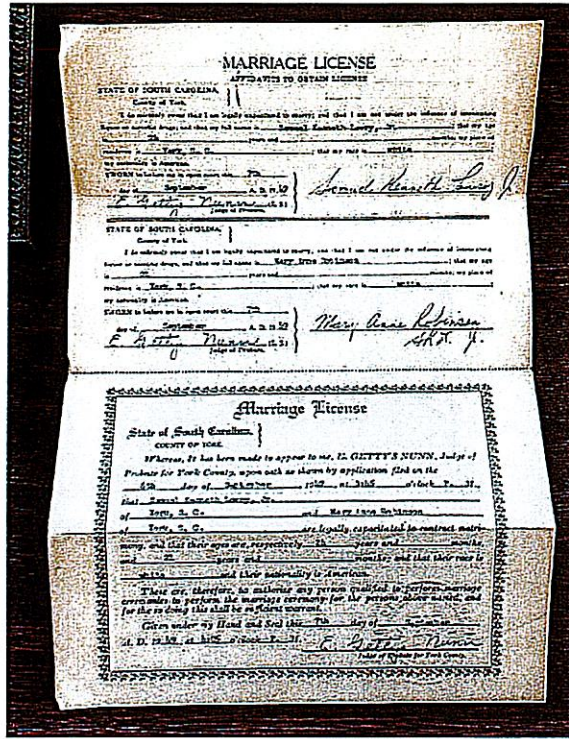 MARRIAGE LICENSE
AFFIDAVITS TO OBTAIN LICENSE
STATE OF SOUTH CAROLINA,
County of York.
I do solemnly swear that I am legally capacitated to marry; and that I am not under the influence of intoxicating
liquor or narcotic drugs; and that my full name is Samuel Kenneth Lowry, Jr. ; that my age
is years and months; my place of
residence is York, S. C. ; that my race is white
my nationality is American.
SWORN to before me in open court this 7th
day of September A. D. 19
E. Gettys Nunn (L. S.)
Judge of Probate.
Samuel Kenneth Lowry Jr.
STATE OF SOUTH CAROLINA,
County of York.
I do solemnly swear that I am legally capacitated to marry, and that I am not under the influence of intoxicating
liquor or narcotic drugs, and that my full name is Mary Anne Robinson ; that my age
is years and months, my place of
residence is York, S. C. ; that my race is white
my nationality is American.
SWORN to before me in open court this 7th
day of September A. D. 19
E. Gettys Nunn (L. S.)
Judge of Probate.
Mary Anne Robinson
Marriage License
State of South Carolina,
COUNTY OF YORK.
Whereas, It has been made to appear to me, E. GETTYS NUNN, Judge of
Probate for York County, upon oath as shown by application filed on the
day of September 19 at o'clock P. M.,
that Samuel Kenneth Lowry, Jr.
of York, S. C. and Mary Anne Robinson
of York, S. C. are legally capacitated to contract matri-
mony, and that their ages are, respectively years and months
and years and months; and that their race is
white and their nationality is American.
These are, therefore, to authorize any person qualified to perform marriage
ceremonies to perform the marriage ceremony for the persons above named, and
for the so doing this shall be sufficient warrant.
Given under my Hand and Seal this 7th day of September
A. D. 19 at o'clock P. M.
E. Gettys Nunn
Judge of Probate for York County.